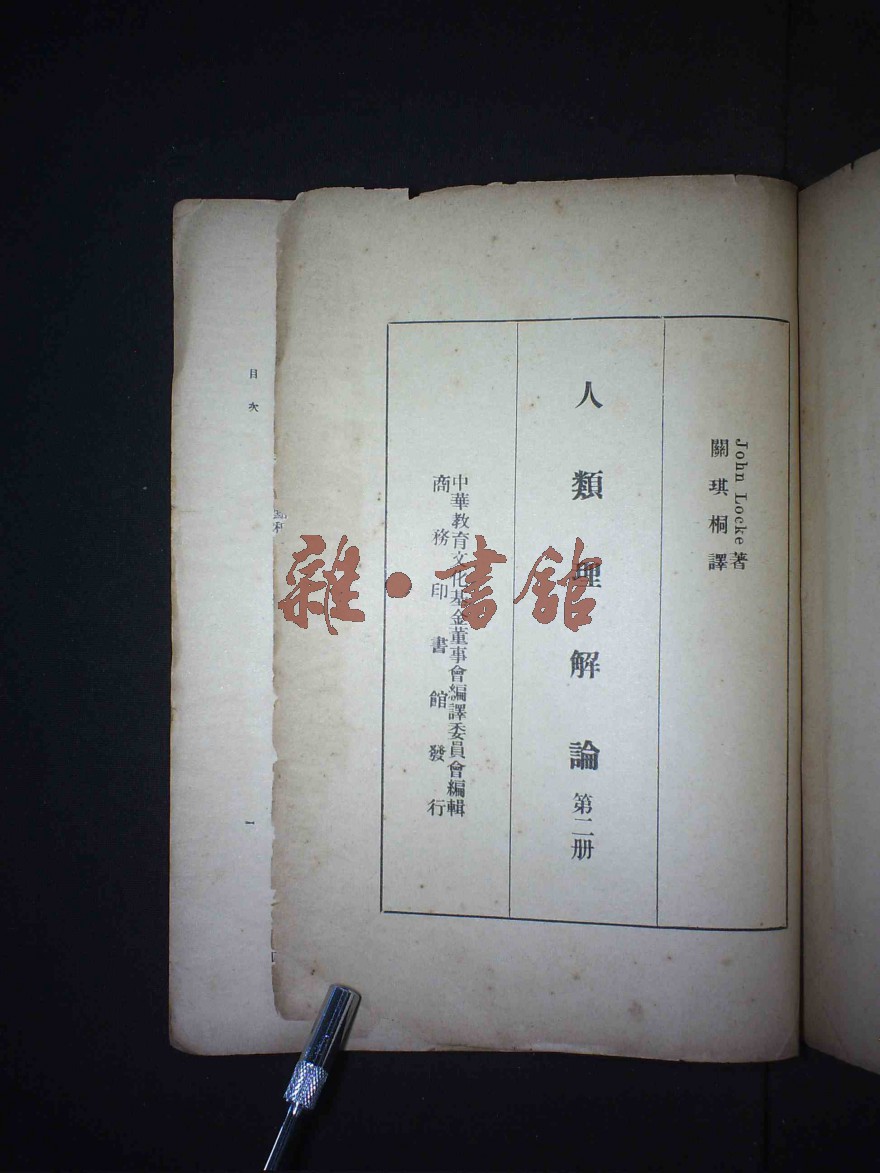 John Locke著
關琪桐譯
人類理解論 第二册
中華教育文化基金董事會編譯委員會編輯
商務印書館發行
目次
一
雜·書館